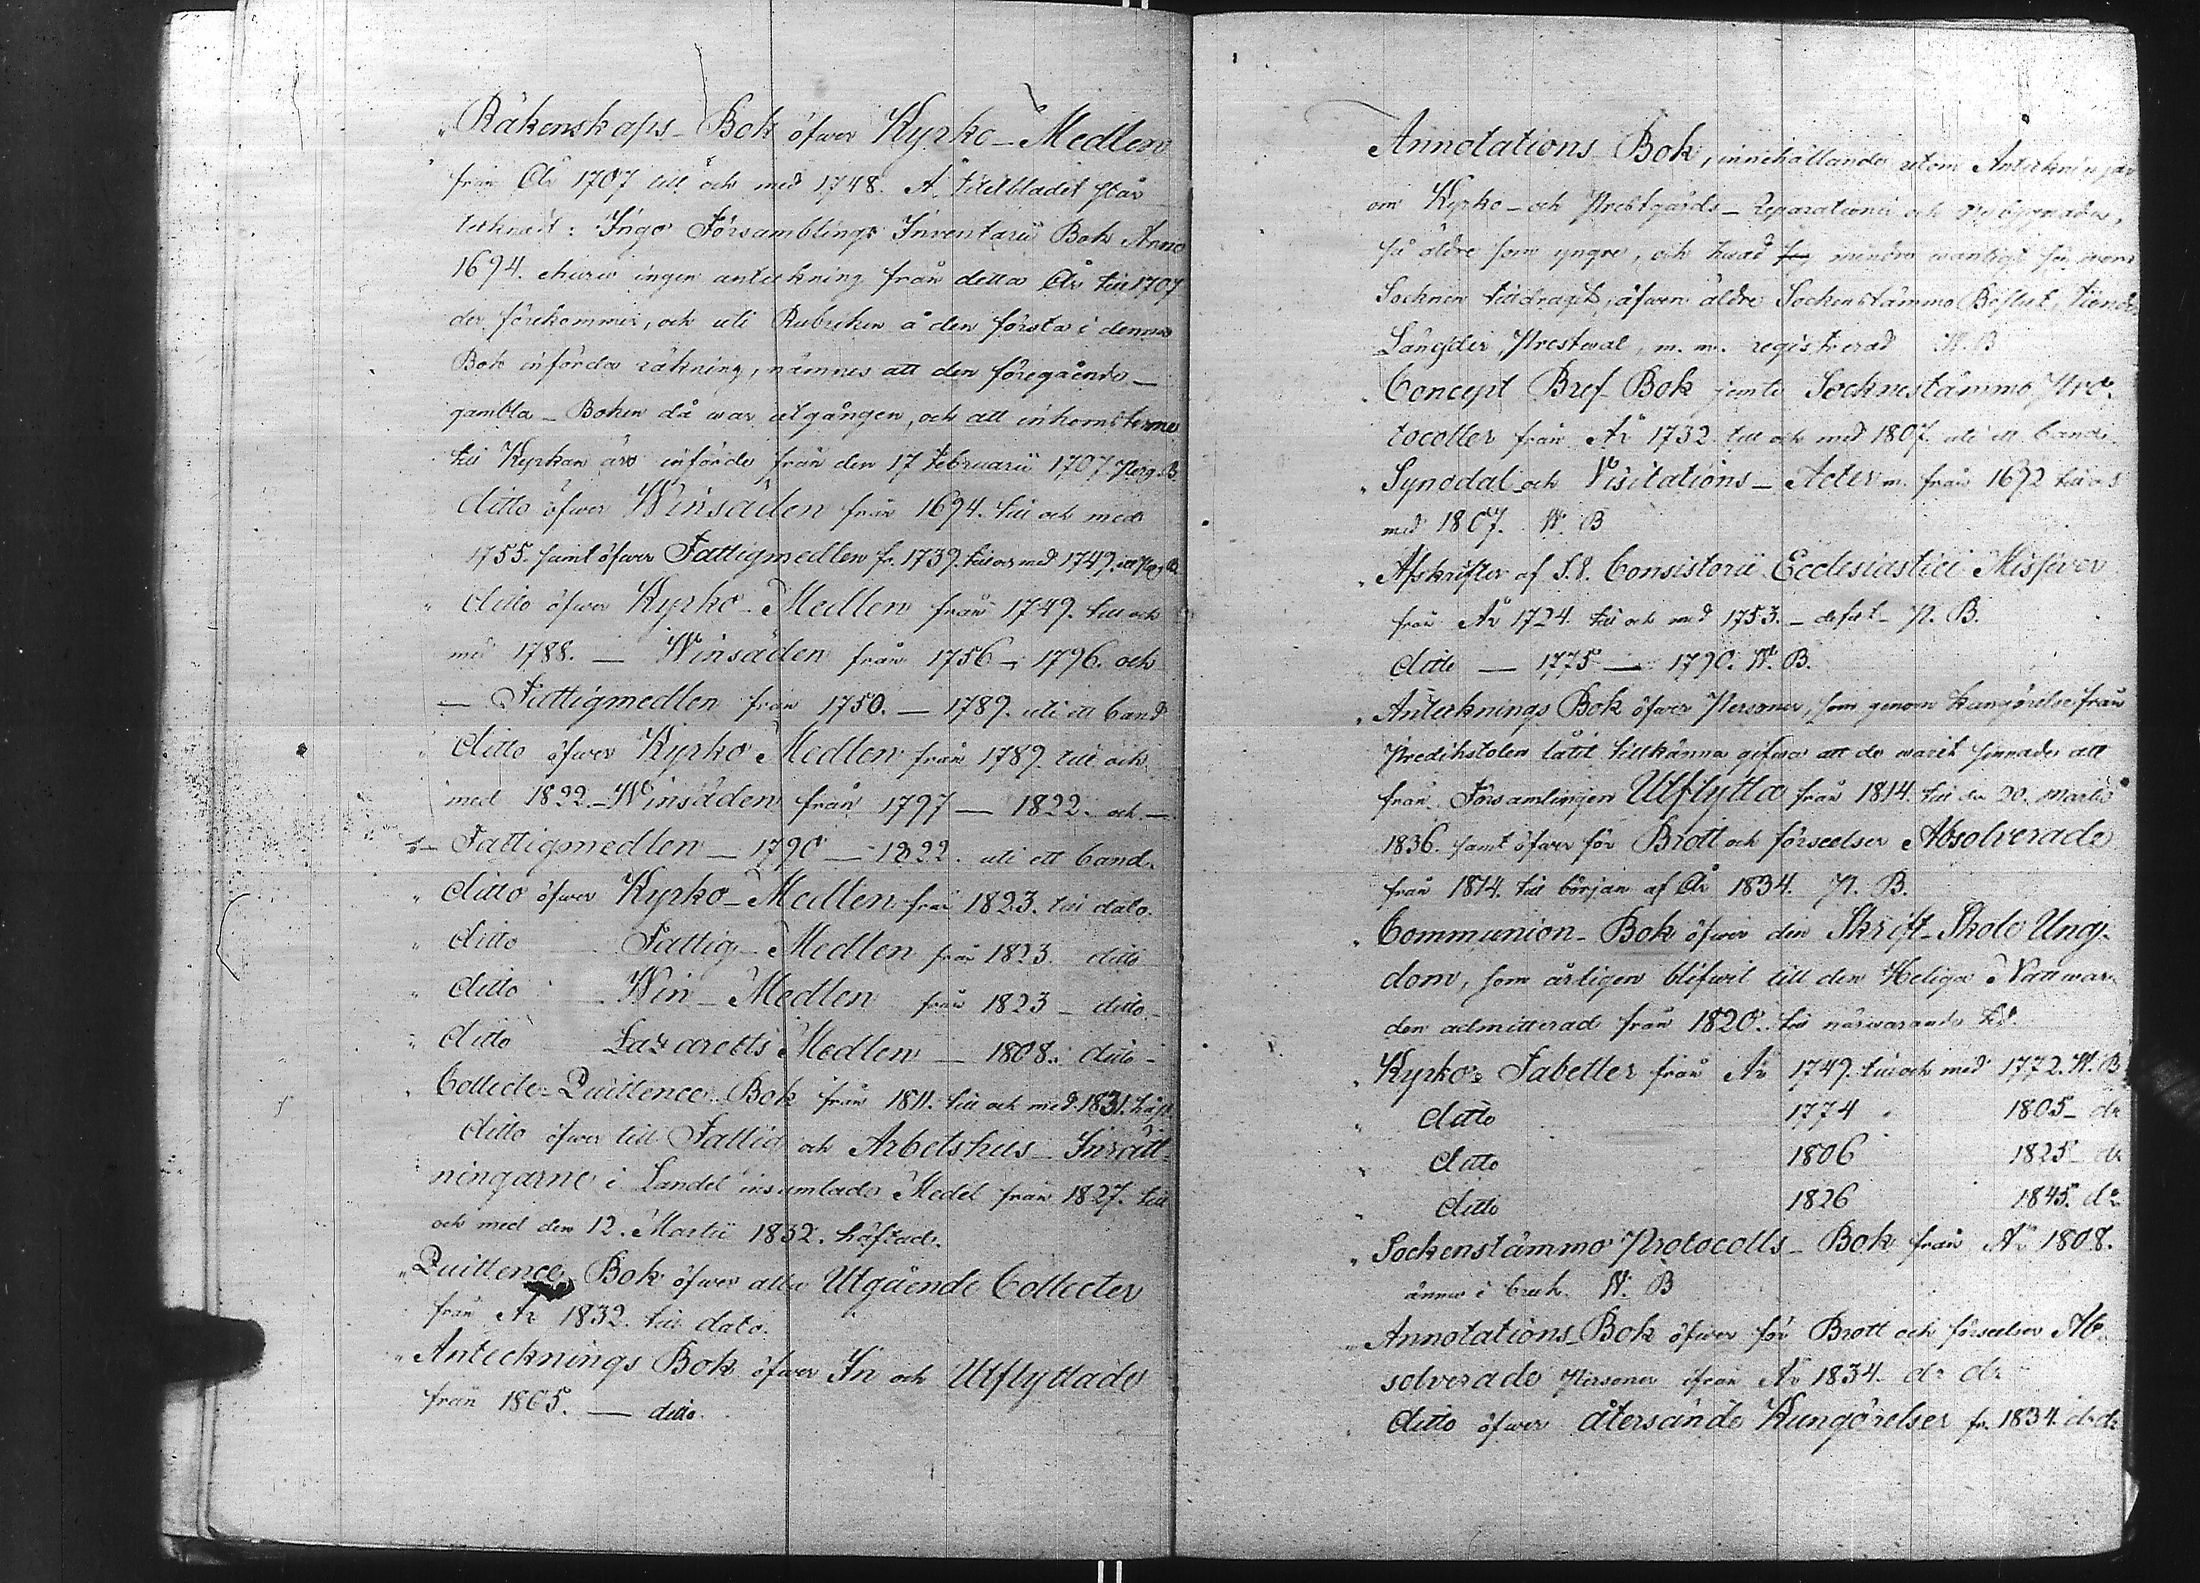 Räkenskaps-Bok öfwer Kyrko-Medlen
från År 1707 till och med 1748. Å titelbladet står
teknadt: Ingo Församblings Inventarii Bok Anno
1694. ehuru ingen anteckning från detta År till 1707
der förekommer, och uti Rubriken å den första i denna
Bok införda räkning, nämnes att den föregående
gambla - Boken då war utgången, och att inkomsterne
till Kyrkan äro införde från den 17 Februarii 1707. Perg. B.
ditto öfwer Winsäden från 1694. till och med
1755. samt öfwer Fattigmedlen fr. 1739. till o med 1749.
ditto öfwer Kyrko-Medlen från 1749. till och
med 1788. — Winsäden från 1756 — 1796. och
— Fattigmedlen från 1750. — 1789. uti ett band
ditto öfwer Kyrko Medlen från 1789. till och
med 1822 - Winsäden från 1797 — 1822. och —
Fattigmedlen — 1790 — 1822. uti ett band.
ditto öfwer Kyrko-Medlen från 1823. till dato.
ditto Fattig-Medlen från 1823. ditto
ditto Win-Medlen från 1823 - ditto -
ditto Lazaretts Medlen — 1808. ditto -
Collecte-Quittence Bok från 1811. till och med 1831. häft
ditto öfwer till Fattig och Arbetshus-Inrätt-
ningarne i Landet insamlade Medel från 1827. till
och med den 12. Martii 1832. häftad.
Quittence Bok öfwer alla Utgående Collecter
från År 1832. till dato.
Antecknings Bok öfwer In och Utflyttade
från 1805. — ditto.
Annotations Bok, innehållande utom Anteckningar
om Kyrko- och Prestgårds-Reparationer och nybygnader,
så äldre som yngre, och hwad mindre wanligt
Socknen tilldragit, äfwen äldre Sockenstämmo Beslut, tiende
Längder, Prestwal, m. m. registrerad W. B
Concept Bref Bok jemte Socknestämmo Pro-
tocoller från År 1732. till och med 1807. uti ett band.
Synodal och Visitations-Acter m. från 1692 till och
med 1807. W. B
Afskrifter af S. V. Consistorii Ecclesiastici Missiver
från År 1724. till och med 1753. - defect - P. B.
ditto — 1775 — 1790. W. B.
Antecknings Bok öfwer Personer, som genom Kungörelse från
Predikstolen låtit tillkänna gifwa att de warit sinnade att
från Församlingen Utflytta från 1814. till den 20. Martii
1836. samt öfwer för Brott och förseelser Absolverade
från 1814. till början af År 1834. P. B.
Communion-Bok öfwer den Skrift-Skole Ung-
dom, som årligen blifwit till den Heliga Nattwar-
den admitterad från 1820. till närwarande tid.
Kyrko-Tabeller från År 1749. till och med 1772. W. B
ditto 1774 1805 - do
ditto 1806 1825 - do
ditto 1826 1845. do
Sockenstämmo Protocolls-Bok från År 1808.
ännu i bruk. W. B
Annotations Bok öfwer för Brott och förseelser Ab-
solverade Personer ifrån År 1834. do do
ditto öfwer återsände Kungörelser fr. 1834. do do